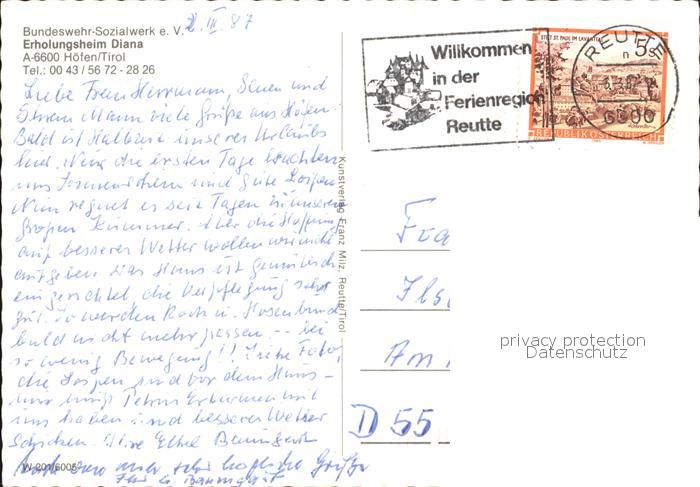 Bundeswehr-Sozialwerk e. V.
Erholungsheim Diana
A-6600 Höfen/Tirol
Tel.: 00 43 / 56 72 - 28 26
2. III. 87
Liebe Frau Herrmann, Ihnen und
Ihrem Mann viele Grüße aus Höfen.
Bald ist Halbzeit unseres Urlaubs
Nur die ersten Tage brachten
uns Sonnenschein und gute Loipen
Nun regnet es seit Tagen zu unserem
großen Kummer. Aber die Hoffnung
auf besseres Wetter wollen wir nicht
aufgeben. Das Haus ist gemütlich
eingerichtet, die Verpflegung sehr
gut. So werden Rock u. Hosenbund
bald nicht mehr passen -- bei
so wenig Bewegung!! Siehe Foto,
die Loipen sind vor dem Haus -
nur muß Petrus Erbarmen mit
uns haben und besseres Wetter
schicken. Ihre
auch sehr herzliche Grüße
W 201/6005
Kunstverlag Franz Milz, Reutte/Tirol
Willkommen
in der
Ferienregion
Reutte
STIFT ST. PAUL IM LAVANTTAL
5s
REPUBLIK ÖSTERREICH
REUTTE
6600
Fra
Ilse
Am
D 55
privacy protection
Datenschutz